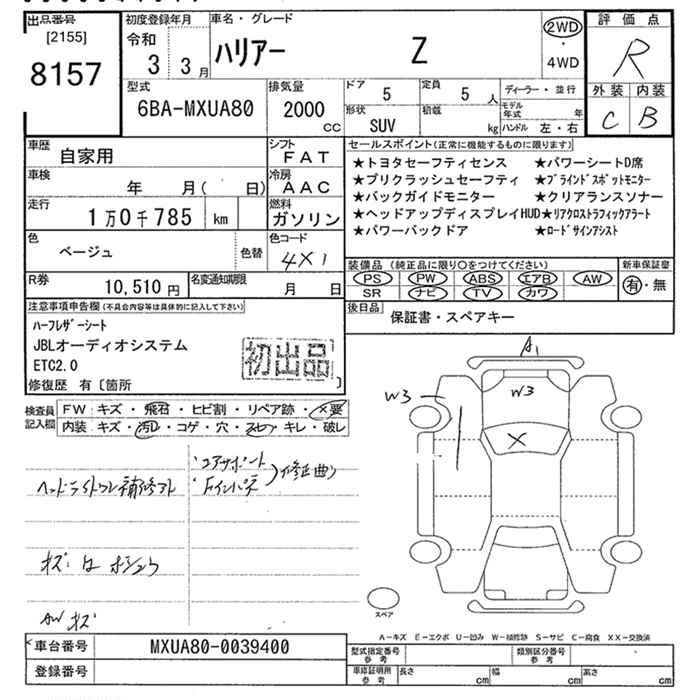 出品番号
[2155]
8157
初度登録年月
令和
3 3月
車名・グレード
ハリアー Z
2WD
・
4WD
評価点
R
外装 内装
C B
型式
6BA-MXUA80
排気量
2000
CC
ドア
5
定員
5 人
形状
SUV
積載
kg
ディーラー・並行
モデル年式 年
ハンドル 左・右
車歴
自家用
シフト
FAT
車検
年 月( 日)
冷房
AAC
走行
1万0千785 km
燃料
ガソリン
色
ベージュ
色替
色コード
4X1
R券
10,510円
名変通知期限
月 日
セールスポイント(正常に機能するものに限ります)
★トヨタセーフティセンス ★パワーシートD席
★プリクラッシュセーフティ ★ブラインドスポットモニター
★バックガイドモニター ★クリアランスソナー
★ヘッドアップディスプレイHUD★リアクロストラフィックアラート
★パワーバックドア ★ロードサインアシスト
装備品(純正品に限り○をつけてください)
PS PW ABS エアB AW
SR ナビ TV カワ
新車保証書
有・無
後日品
保証書・スペアキー
注意事項申告欄(不具合内容等は具体的に記入して下さい)
ハーフレザーシート
JBLオーディオシステム
ETC2.0
初出品
修復歴 有〔箇所 〕
検査員記入欄
FW キズ・飛石・ヒビ割・リペア跡・X要
内装 キズ・汚レ・コゲ・穴・スレ・キレ・破レ
コアサポート
Fインパネ
修正曲り
ヘッドライトフレ補修ソト
AW キズ
A1
W3
W3
X
スペア
A-キズ E-エクボ U-凹み W-補修跡 S-サビ C-腐食 XX-交換済
車台番号
MXUA80-0039400
登録番号
型式指定番号
参考
類別区分番号
参考
車庫証明用
参考
長さ cm
幅 cm
高さ cm